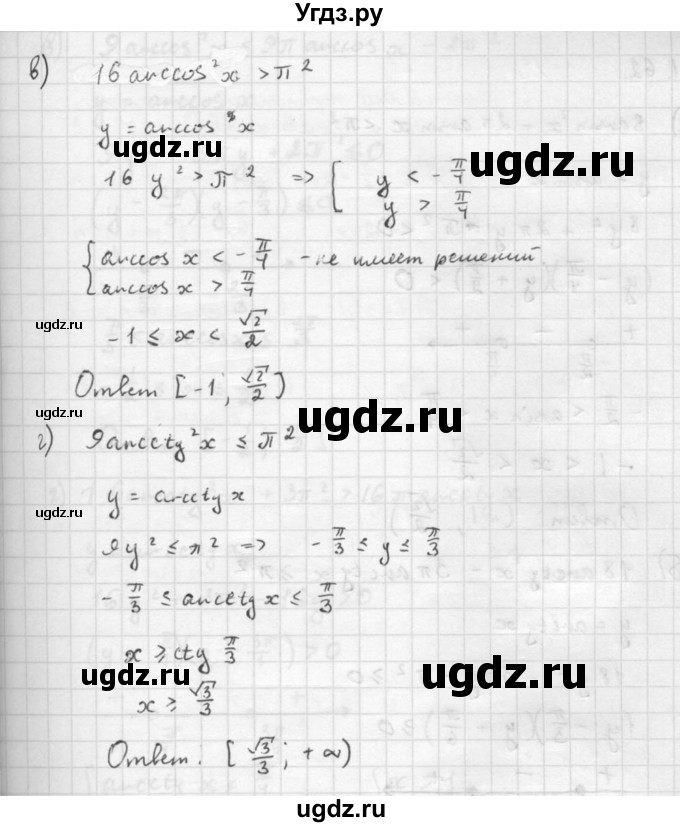 Угдз.ру
в) 16 arccos²x > π²
y = arccos x
ugdz.ru ugdz.ru
16 y² > π² => [ y < -π/4
y > π/4
{ arccos x < -π/4 - не имеет решений
arccos x > π/4
ugdz.ru
-1 ≤ x < √2/2
Ответ [-1; √2/2)
ugdz.ru ugdz.ru
г) 9 arcctg²x ≤ π²
y = arcctg x
9y² ≤ π² => -π/3 ≤ y ≤ π/3
-π/3 ≤ arcctg x ≤ π/3
x ≥ ctg π/3
ugdz.ru ugdz.ru
x ≥ √3/3
Ответ: [√3/3; +∞)
ugdz.ru
ugdz.ru